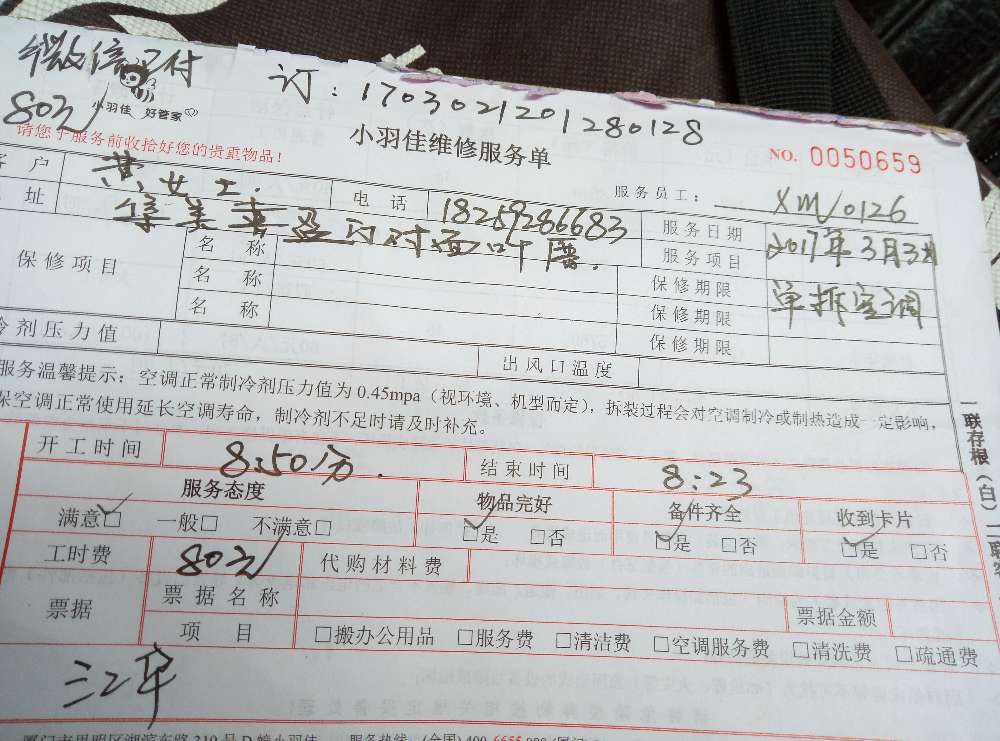 微信已付
80元
订：1703021201280128
小羽佳 好管家
请您于服务前收拾好您的贵重物品！
小羽佳维修服务单
NO. 0050659
服务员工：XM/0126
客 户 黄女士. 电 话 18259286683 服务日期 2017年3月3日
址 对面
保修项目
名 称 服务项目 单拆空调
名 称 保修期限
名 称 保修期限
保修期限
冷剂压力值 出风口温度
服务温馨提示：空调正常制冷剂压力值为 0.45mpa（视环境、机型而定），拆装过程会对空调制冷或制热造成一定影响，
保空调正常使用延长空调寿命，制冷剂不足时请及时补充。
开工时间 8:50分. 结束时间 8:23
服务态度 物品完好 备件齐全 收到卡片
满意□ 一般□ 不满意□ □是 □否 □是 □否 □是 □否
工时费 80元 代购材料费
票据 票据名称 票据金额
项 目 □搬办公用品 □服务费 □清洁费 □空调服务费 □清洗费 □疏通费
一联存根（白）二联客
厦门市思明区湖滨东路 310 号 D 幢小羽佳 服务热线：(全国) 400-6655